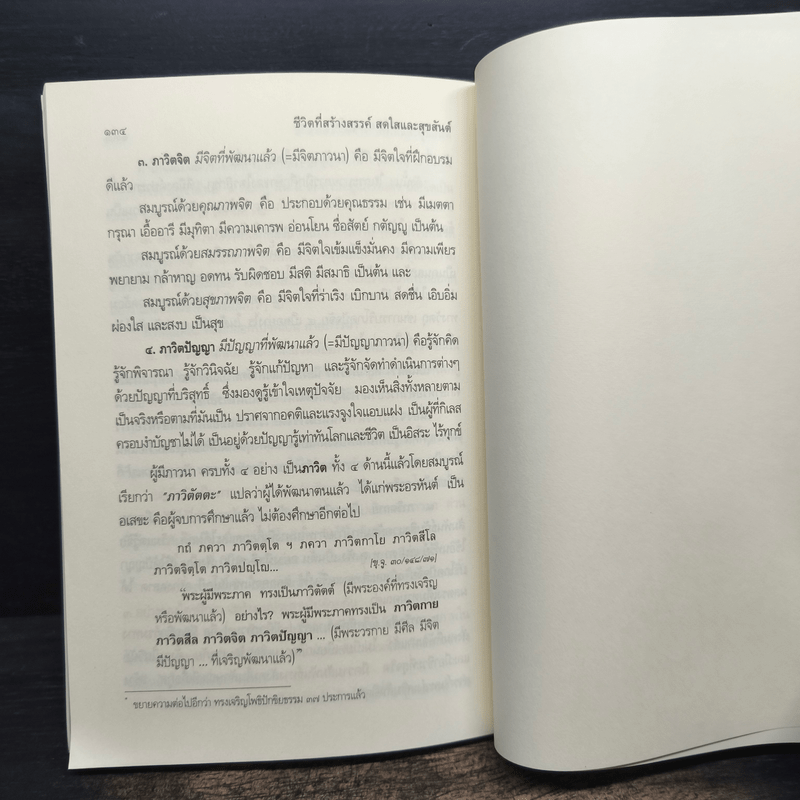 ๑๓๔
ชีวิตที่สร้างสรรค์ สดใสและสุขสันต์
๓. ภาวิตจิต มีจิตที่พัฒนาแล้ว (=มีจิตภาวนา) คือ มีจิตใจที่ฝึกอบรม
ดีแล้ว
สมบูรณ์ด้วยคุณภาพจิต คือ ประกอบด้วยคุณธรรม เช่น มีเมตตา
กรุณา เอื้ออารี มีมุทิตา มีความเคารพ อ่อนโยน ซื่อสัตย์ กตัญญู เป็นต้น
สมบูรณ์ด้วยสมรรถภาพจิต คือ มีจิตใจเข้มแข็งมั่นคง มีความเพียร
พยายาม กล้าหาญ อดทน รับผิดชอบ มีสติ มีสมาธิ เป็นต้น และ
สมบูรณ์ด้วยสุขภาพจิต คือ มีจิตใจที่ร่าเริง เบิกบาน สดชื่น เอิบอิ่ม
ผ่องใส และสงบ เป็นสุข
๔. ภาวิตปัญญา มีปัญญาที่พัฒนาแล้ว (=มีปัญญาภาวนา) คือรู้จักคิด
รู้จักพิจารณา รู้จักวินิจฉัย รู้จักแก้ปัญหา และรู้จักจัดทำดำเนินการต่างๆ
ด้วยปัญญาที่บริสุทธิ์ ซึ่งมองดูรู้เข้าใจเหตุปัจจัย มองเห็นสิ่งทั้งหลายตาม
เป็นจริงหรือตามที่มันเป็น ปราศจากอคติและแรงจูงใจแอบแฝง เป็นผู้ที่กิเลส
ครอบงำบัญชาไม่ได้ เป็นอยู่ด้วยปัญญารู้เท่าทันโลกและชีวิต เป็นอิสระ ไร้ทุกข์
ผู้มีภาวนา ครบทั้ง ๔ อย่าง เป็นภาวิต ทั้ง ๔ ด้านนี้แล้วโดยสมบูรณ์
เรียกว่า "ภาวิตัตตะ" แปลว่าผู้ได้พัฒนาตนแล้ว ได้แก่พระอรหันต์ เป็น
อเสขะ คือผู้จบการศึกษาแล้ว ไม่ต้องศึกษาอีกต่อไป
กถํ ภควา ภาวิตตฺโต ฯ ภควา ภาวิตกาโย ภาวิตสีโล
ภาวิตจิตฺโต ภาวิตปญฺโญ...
[ขุ.จู. ๓๐/๑๔๘/๗๑]
"พระผู้มีพระภาค ทรงเป็นภาวิตัตต์ (มีพระองค์ที่ทรงเจริญ
หรือพัฒนาแล้ว) อย่างไร? พระผู้มีพระภาคทรงเป็น ภาวิตกาย
ภาวิตสีล ภาวิตจิต ภาวิตปัญญา ... (มีพระวรกาย มีศีล มีจิต
มีปัญญา ... ที่เจริญพัฒนาแล้ว)"*
* ขยายความต่อไปอีกว่า ทรงเจริญโพธิปักขิยธรรม ๓๗ ประการแล้ว